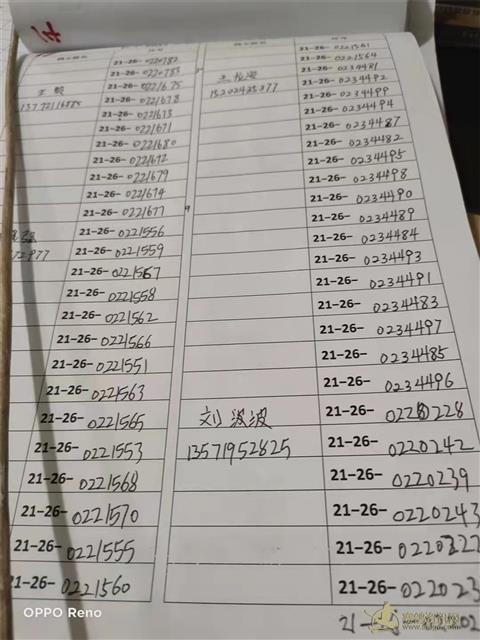 王毅
13772116885
21-26-0220782
21-26-0220783
21-26-0221675
21-26-0221678
21-26-0221673
21-26-0221671
21-26-0221680
21-26-0221672
21-26-0221679
21-26-0221674
21-26-0221677
21-26-0221556
21-26-0221559
21-26-0221567
21-26-0221558
21-26-0221562
21-26-0221566
21-26-0221551
21-26-0221563
21-26-0221565
21-26-0221553
21-26-0221568
21-26-0221570
21-26-0221555
21-26-0221560
21-26-0221561
21-26-0221564
21-26-0234481
21-26-0234492
21-26-0234499
21-26-0234494
21-26-0234487
21-26-0234482
21-26-0234495
21-26-0234498
21-26-0234490
21-26-0234489
21-26-0234484
21-26-0234493
21-26-0234491
21-26-0234483
21-26-0234497
21-26-0234485
21-26-0234496
刘波波
13571952825
21-26-0220228
21-26-0220242
21-26-0220239
21-26-0220243
21-26-0220222
21-26-022023
OPPO Reno